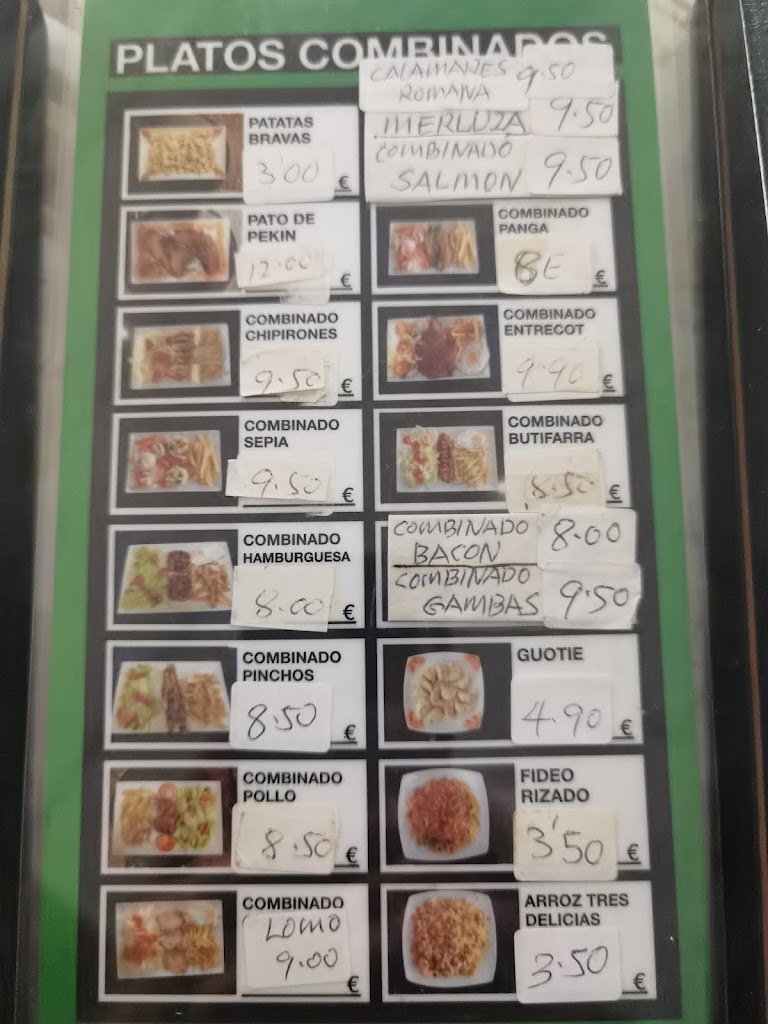 PLATOS COMBINADOS
PATATAS
BRAVAS
3'00 €
PATO DE
PEKIN
12.00 €
COMBINADO
CHIPIRONES
9.50 €
COMBINADO
SEPIA
9.50 €
COMBINADO
HAMBURGUESA
8.00 €
COMBINADO
PINCHOS
8.50 €
COMBINADO
POLLO
8.50 €
COMBINADO
LOMO
9.00 €
CALAMARES 9.50
ROMANA
MERLUZA 9.50
COMBINADO
SALMON 9.50
COMBINADO
PANGA
8E €
COMBINADO
ENTRECOT
9.90 €
COMBINADO
BUTIFARRA
8.50 €
COMBINADO
BACON 8.00
COMBINADO
GAMBAS 9.50
GUOTIE
4.90 €
FIDEO
RIZADO
3'50 €
ARROZ TRES
DELICIAS
3.50 €